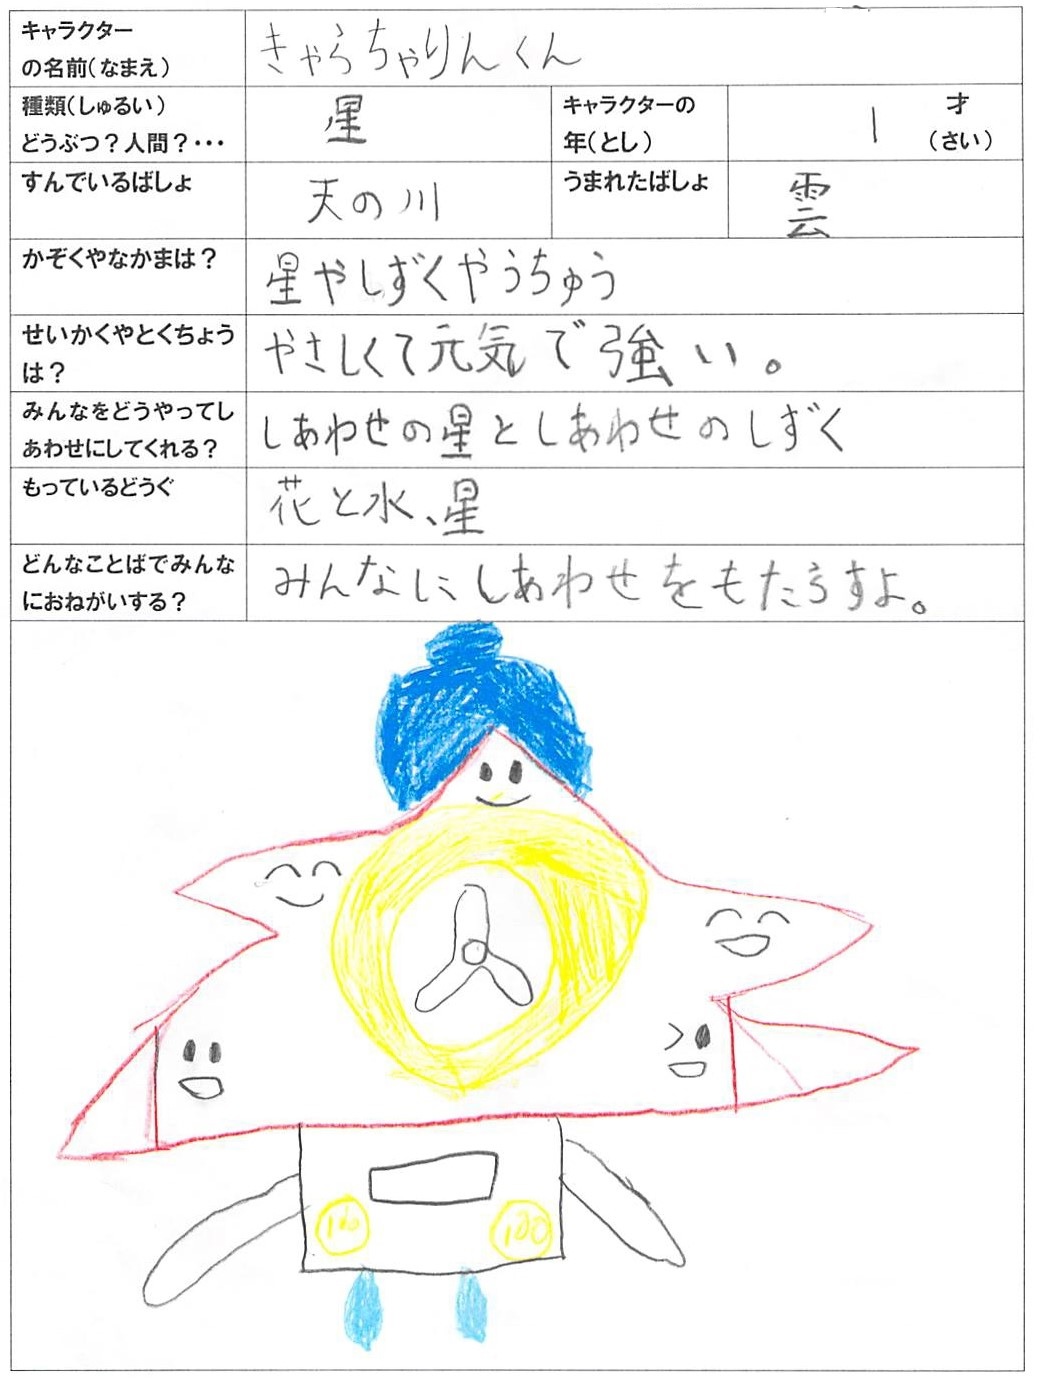 キャラクター
の名前(なまえ)
きゃらちゃりんくん
種類(しゅるい)
どうぶつ？人間？・・・
星
キャラクターの
年(とし)
1 才
(さい)
すんでいるばしょ
天の川
うまれたばしょ
雲
かぞくやなかまは？
星やしずくやうちゅう
せいかくやとくちょう
は？
やさしくて元気で強い。
みんなをどうやってし
あわせにしてくれる？
しあわせの星としあわせのしずく
もっているどうぐ
花と水、星
どんなことばでみんな
におねがいする？
みんなにしあわせをもたらすよ。